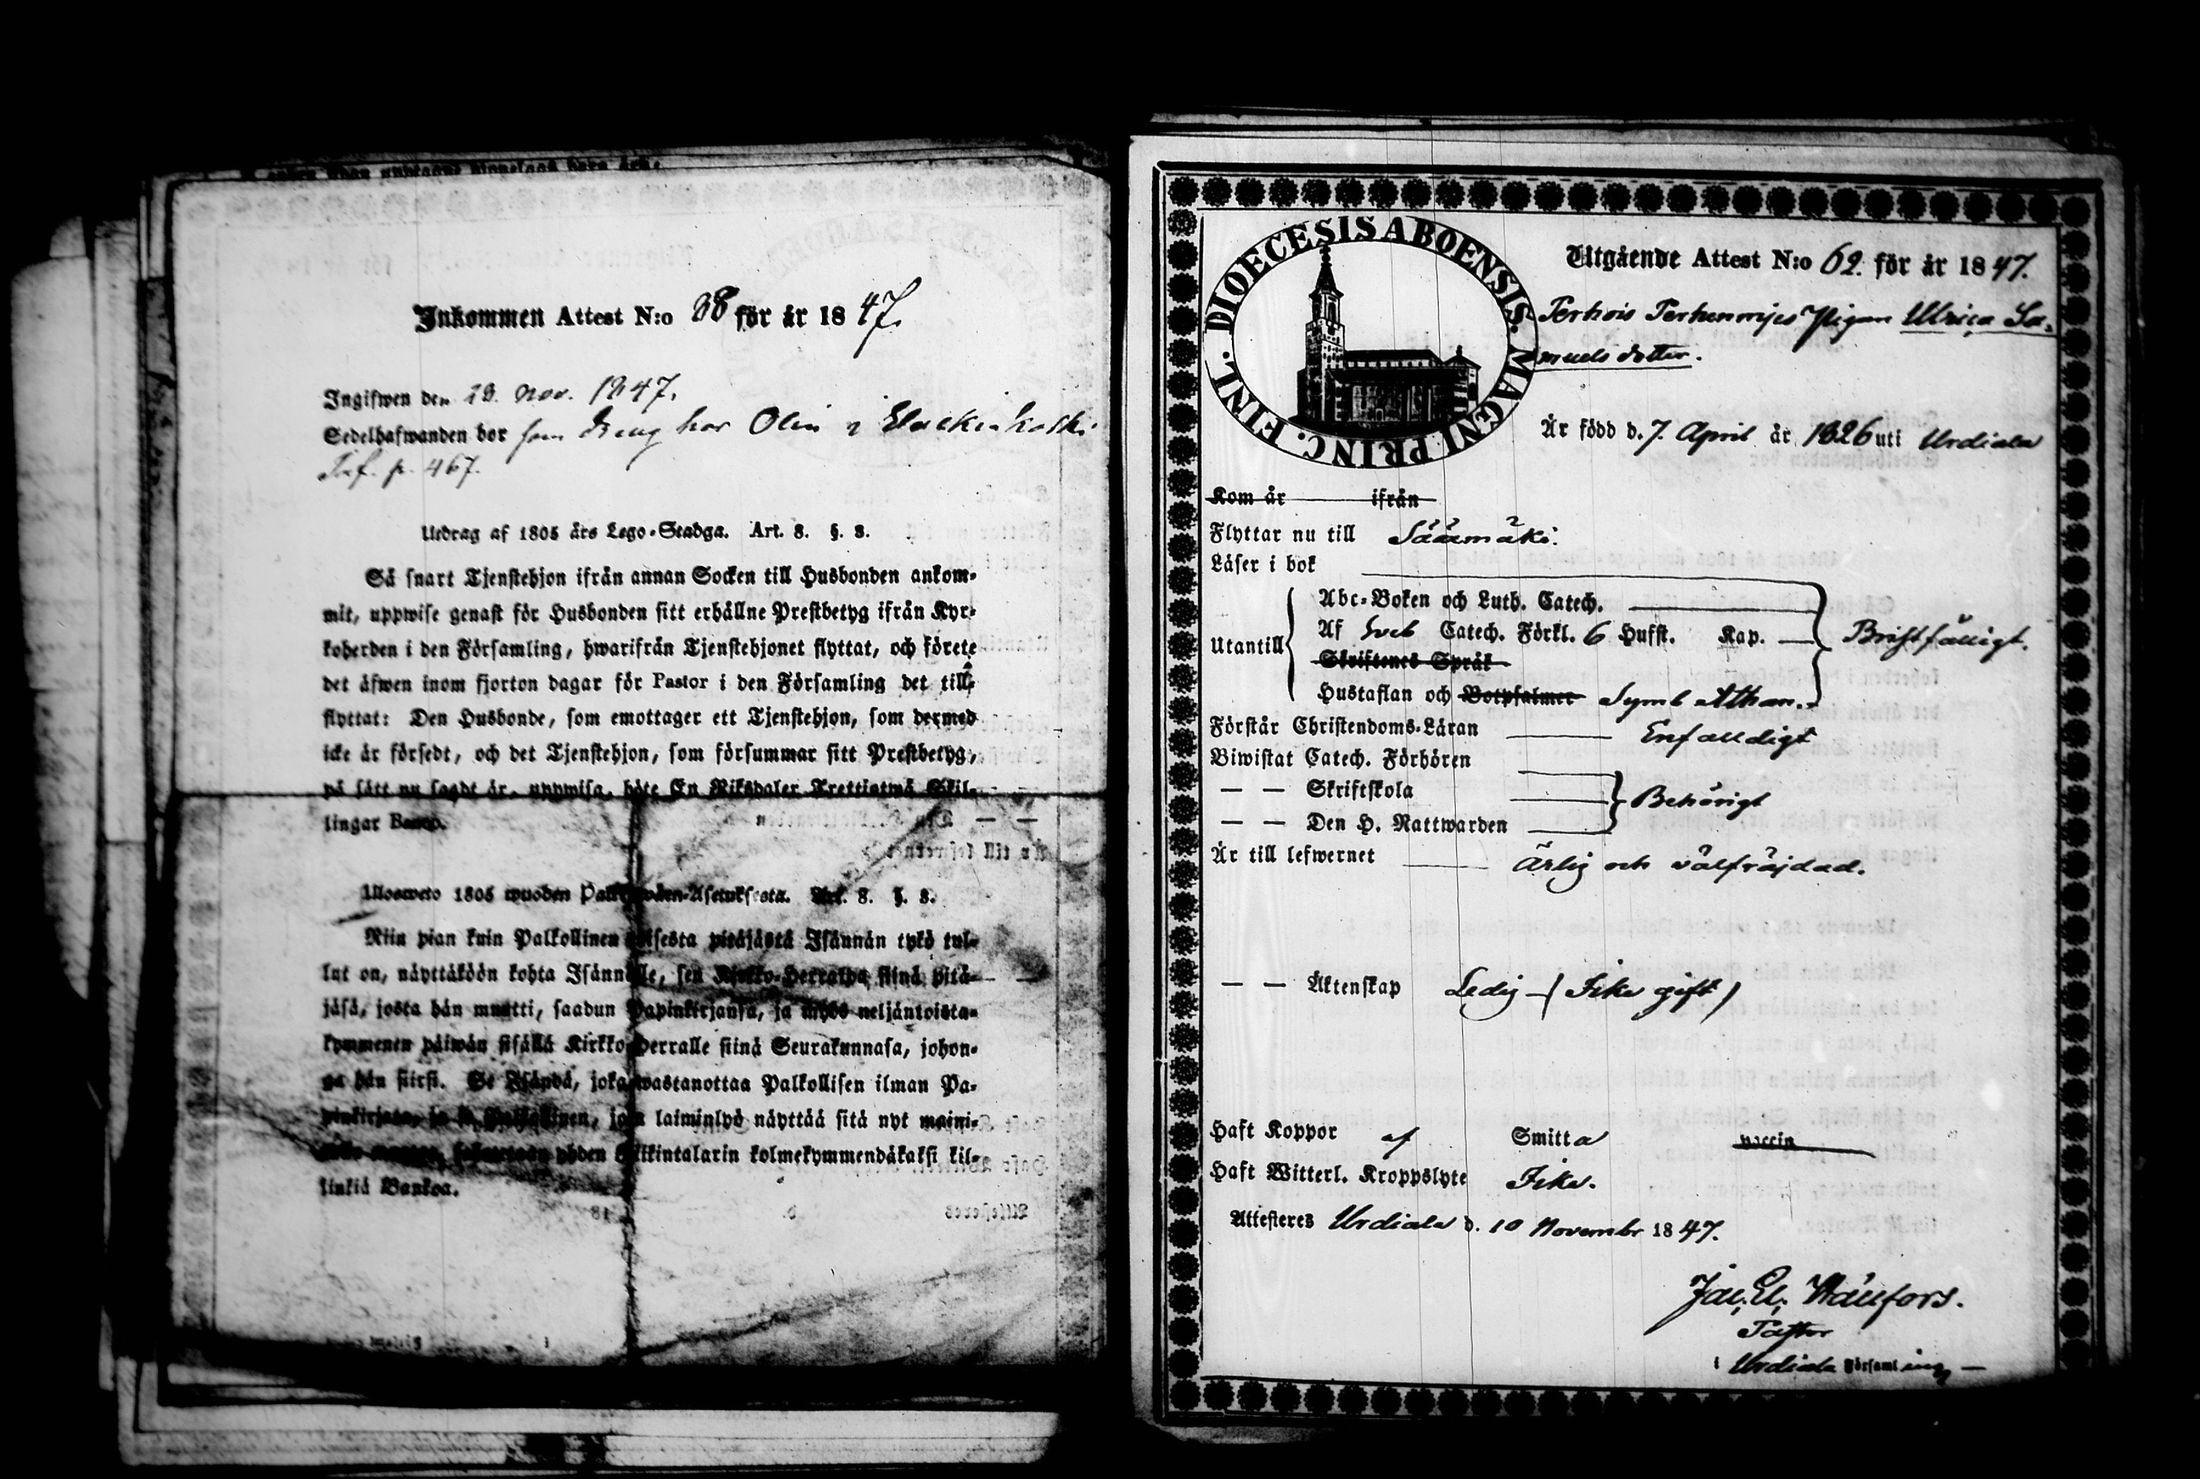 Inkommen Attest N:o 38 för år 1847.
Ingifwen den 29. nov. 1847.
Sedelhafwanden bor som Dreng hos Olin i
p. 467.
Utdrag af 1805 års Lego-Stadga. Art. 8. §. 3.
Så snart Tjenstehjon ifrån annan Socken till Husbonden ankom-
mit, uppwise genast för Husbonden sitt erhållne Prestbetyg ifrån Kyr-
koherden i den Församling, hwarifrån Tjenstehjonet flyttat, och förete
det äfwen inom fjorton dagar för Pastor i den Församling det till-
flyttat: Den Husbonde, som emottager ett Tjenstehjon, som dermed
icke är försedt, och det Tjenstehjon, som försummar sitt Prestbetyg,
på sätt nu sagdt är, uppwisa, böte En Riksdaler Trettiotwå Skil-
lingar Banco.
Ulosweto 1805 wuoden Palkowäen-Asetuksesta. Art. 8. §. 3.
Niin pian kuin Palkollinen toisesta pitäjästä Isännän tykö tul-
lut on, näyttäköön kohta Isännälle, sen Kirkko-Herralda siinä pitä-
jäsä, josta hän muutti, saadun Papinkirjansa, ja myös neljäntoista-
kymmenen päiwän sisällä Kirkko-Herralle siinä Seurakunnasa, johon-
ga hän siirsi. Se Isändä, joka wastanottaa Palkollisen ilman Pa-
pinkirjata, ja se Palkollinen, joka laiminlyö näyttää sitä nyt maini-
yhden Rikintalarin kolmekymmendäkaksi kil-
linkiä Bankoa.
DIOECESIS ABOENSIS. MAGNI PRINC. FINL.
Utgående Attest N:o 62. för år 1847.
Terhois Pigan Ulrica Sa-
muelsdotter.
Är född d. 7. April år 1826 uti Urdiala
Kom år ifrån
Flyttar nu till Säämäki:
Läser i bok
Utantill
Abc-Boken och Luth. Catech.
Af Sveb Catech. Förkl. 6 Hufst. Kap. Bristfälligt.
Skriftenes Språk
Hustaflan och Botpsalmer Symb Athan.
Förstår Christendoms-Läran Enfaldigt
Biwistat Catech. Förhören
— — Skriftskola Behörigt
— — Den H. Nattwarden
Är till lefwernet Ärlig och välfräjdad.
— — Äktenskap Ledig (Icke gift)
Haft Koppor af Smitta vaccin
Haft Witterl. Kroppslyte Icke.
Attesteres Urdiala d. 10 Novembr 1847.
Pastor
i Urdiala Församling